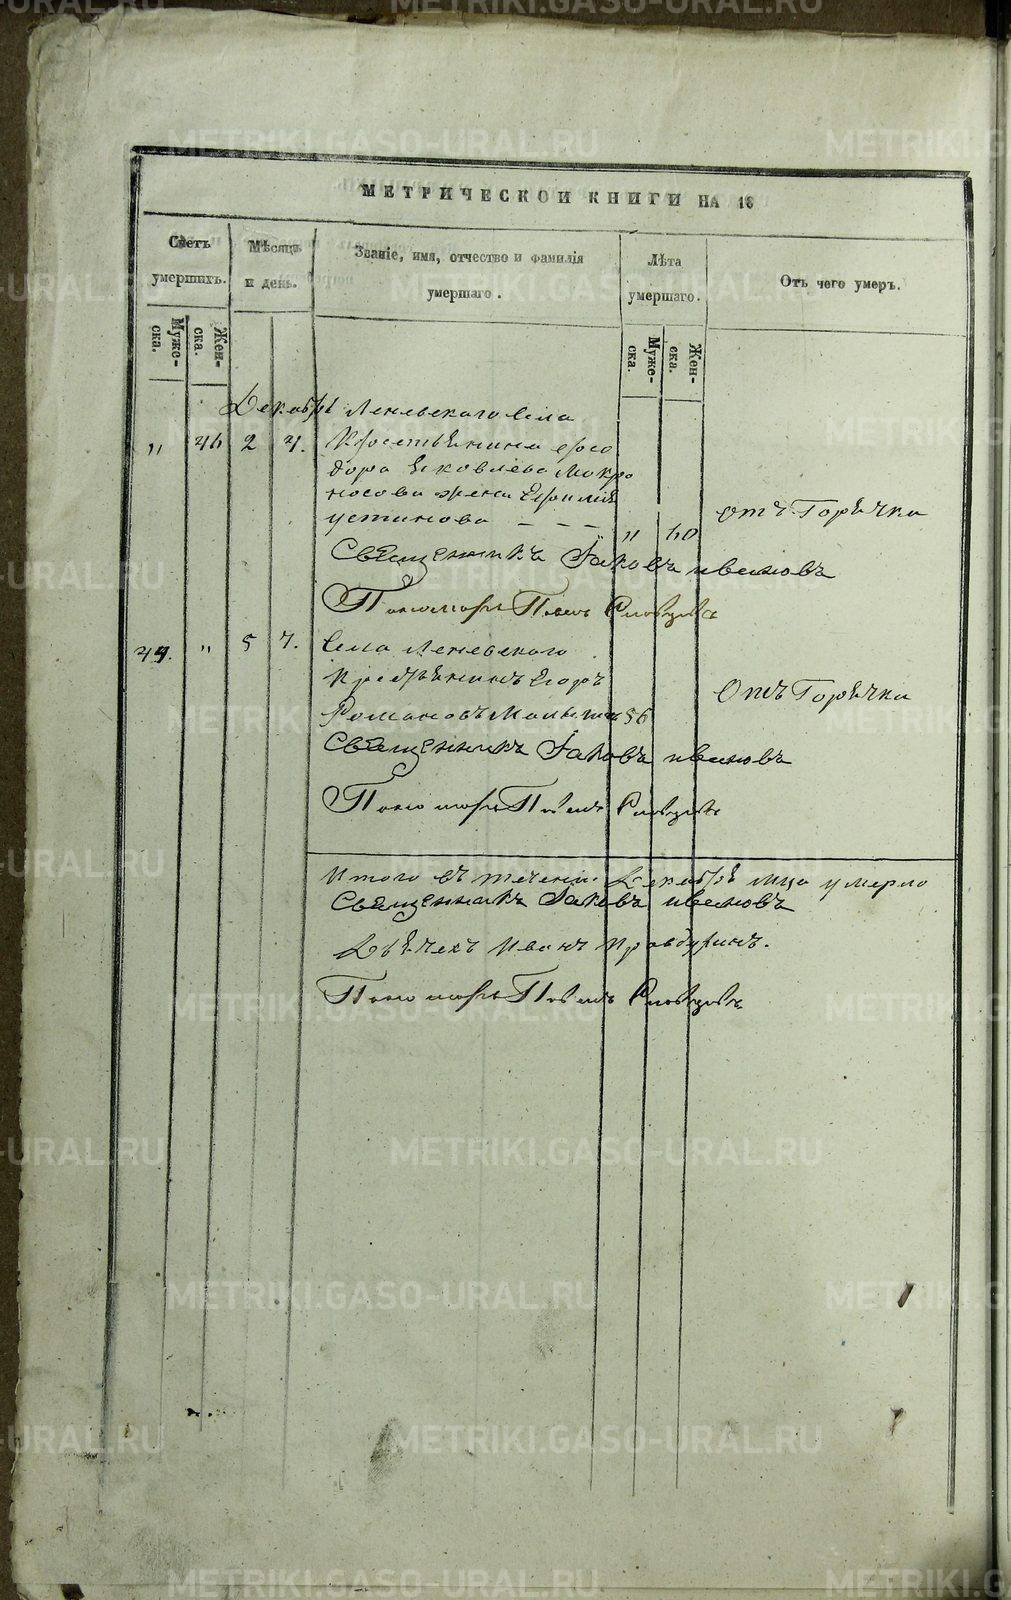 МЕТРИЧЕСКОЙ КНИГИ НА 18
Счетъ умершихъ.
Мѣсяцъ и день.
Званіе, имя, отчество и фамилія умершаго.
Лѣта умершаго.
Отъ чего умеръ.
Муже-ска.
Жен-ска.
Муже-ска.
Жен-ска.
Декабрь Леневскаго села
" 46 2 4. Крестьянина Ѳео
дора Яковлева Мокро
носова жена
Устинова — — — " 60 Отъ Горячки
Священникъ Іаковъ Ивановъ
Пономарь Павелъ
44. " 5 7. Села Леневскаго
Крестьянинъ Егоръ
Романовъ 56 Отъ Горячки
Священникъ Іаковъ Ивановъ
Пономарь Павелъ
Итого въ теченіи Декабря мца умерло
Священникъ Іаковъ Ивановъ
Дьячекъ Иванъ
Пономарь Павелъ
METRIKI.GASO-URAL.RU